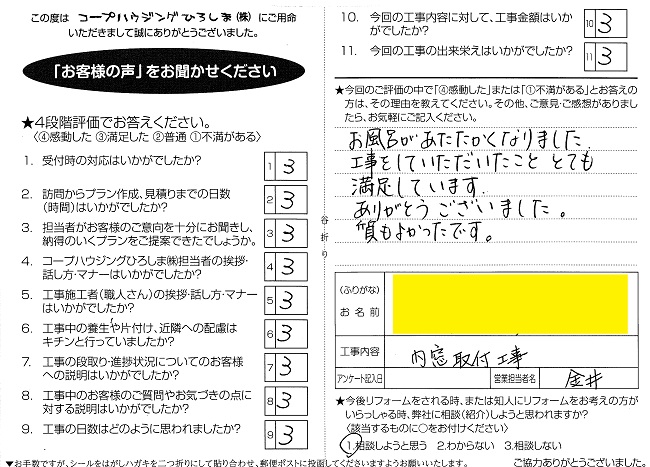 この度は コープハウジングひろしま(株) にご用命
いただきまして誠にありがとうございました。
「お客様の声」をお聞かせください
★4段階評価でお答えください。
〈④感動した ③満足した ②普通 ①不満がある〉
1. 受付時の対応はいかがでしたか? 1 3
2. 訪問からプラン作成、見積りまでの日数
(時間)はいかがでしたか? 2 3
3. 担当者がお客様のご意向を十分にお聞きし、
納得のいくプランをご提案できたでしょうか。 3 3
4. コープハウジングひろしま㈱担当者の挨拶・
話し方・マナーはいかがでしたか? 4 3
5. 工事施工者(職人さん)の挨拶・話し方・マナー
はいかがでしたか? 5 3
6. 工事中の養生や片付け、近隣への配慮は
キチンと行っていましたか? 6 3
7. 工事の段取り・進捗状況についてのお客様
への説明はいかがでしたか? 7 3
8. 工事中のお客様のご質問やお気づきの点に
対する説明はいかがでしたか? 8 3
9. 工事の日数はどのように思われましたか? 9 3
▼お手数ですが、シールをはがしハガキを二つ折りにして貼り合わせ、郵便ポストに投函してくださいますようお願いいたします。
谷折り
10. 今回の工事内容に対して、工事金額はいか
がでしたか? 10 3
11. 今回の工事の出来栄えはいかがでしたか? 11 3
★今回のご評価の中で「④感動した」または「①不満がある」とお答え
の方は、その理由を教えてください。その他、ご意見・ご感想がありまし
たら、お気軽にご記入ください。
お風呂があたたかくなりました.
工事をしていただいたこと とても
満足しています.
ありがとうございました。
質もよかったです。
(ふりがな)
お名前
工事内容 内窓取付工事
アンケート記入日 営業担当者名 金井
★今後リフォームをされる時、または知人にリフォームをお考えの方が
いらっしゃる時、弊社に相談(紹介)しようと思われますか?
〈該当するものに○をお付けください〉
1.相談しようと思う 2.わからない 3.相談しない
ご協力ありがとうございました。